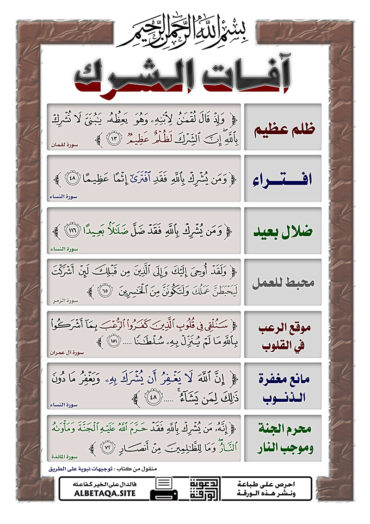 بسم الله الرحمن الرحيم
آفات الشرك
ظلم عظيم
﴿ وَإِذْ قَالَ لُقْمَـٰنُ لِٱبْنِهِۦ وَهُوَ يَعِظُهُۥ يَـٰبُنَىَّ لَا تُشْرِكْ
بِٱللَّهِ إِنَّ ٱلشِّرْكَ لَظُلْمٌ عَظِيمٌ ١٣ ﴾
سورة لقمان
افــتــراء
﴿ وَمَن يُشْرِكْ بِٱللَّهِ فَقَدِ ٱفْتَرَىٰٓ إِثْمًا عَظِيمًا ٤٨ ﴾
سورة النساء
ضلال بعيد
﴿ وَمَن يُشْرِكْ بِٱللَّهِ فَقَدْ ضَلَّ ضَلَـٰلًۢا بَعِيدًا ١١٦ ﴾
سورة النساء
محبط للعمل
﴿ وَلَقَدْ أُوحِىَ إِلَيْكَ وَإِلَى ٱلَّذِينَ مِن قَبْلِكَ لَئِنْ أَشْرَكْتَ
لَيَحْبَطَنَّ عَمَلُكَ وَلَتَكُونَنَّ مِنَ ٱلْخَـٰسِرِينَ ٦٥ ﴾
سورة الزمر
موقع الرعب
في القلوب
﴿ سَنُلْقِى فِى قُلُوبِ ٱلَّذِينَ كَفَرُوا۟ ٱلرُّعْبَ بِمَآ أَشْرَكُوا۟
بِٱللَّهِ مَا لَمْ يُنَزِّلْ بِهِۦ سُلْطَـٰنًا .... ١٥١ ﴾
سورة آل عمران
مانع مغفرة
الـذنــوب
﴿ إِنَّ ٱللَّهَ لَا يَغْفِرُ أَن يُشْرَكَ بِهِۦ وَيَغْفِرُ مَا دُونَ
ذَٰلِكَ لِمَن يَشَآءُ .... ٤٨ ﴾
سورة النساء
محرم الجنة
وموجب النار
﴿ إِنَّهُۥ مَن يُشْرِكْ بِٱللَّهِ فَقَدْ حَرَّمَ ٱللَّهُ عَلَيْهِ ٱلْجَنَّةَ وَمَأْوَىٰهُ
ٱلنَّارُ وَمَا لِلظَّـٰلِمِينَ مِنْ أَنصَارٍ ٧٢ ﴾
سورة المائدة
منقول من كتاب : توجيهات نبوية على الطريق
احرص على طباعة
ونشر هذه الورقة
الدعوية
الورقة
فالدال على الخير كفاعله
ALBETAQA.SITE